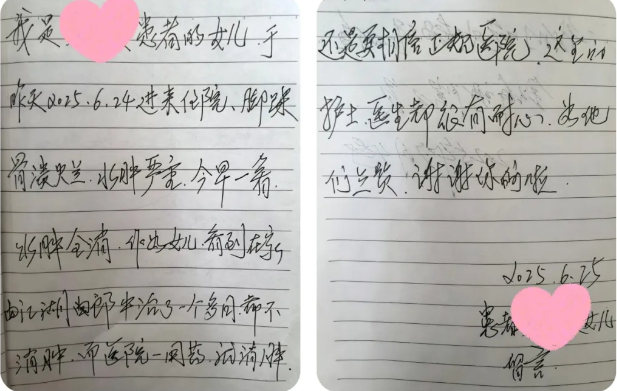 我是 患者的女儿.于
昨天2025.6.24进来住院、脚踝
骨溃烂.水肿严重.今早一看.
水肿全消.作为女儿.看到在家
由江湖 郎中治了一个多月都不
消肿.而医院一用药.就消肿.
还是要相信正规医院.这里的
护士.医生都很有耐心.为他
们点赞.谢谢你们啦.
2025.6.25
患者 女儿
留言.